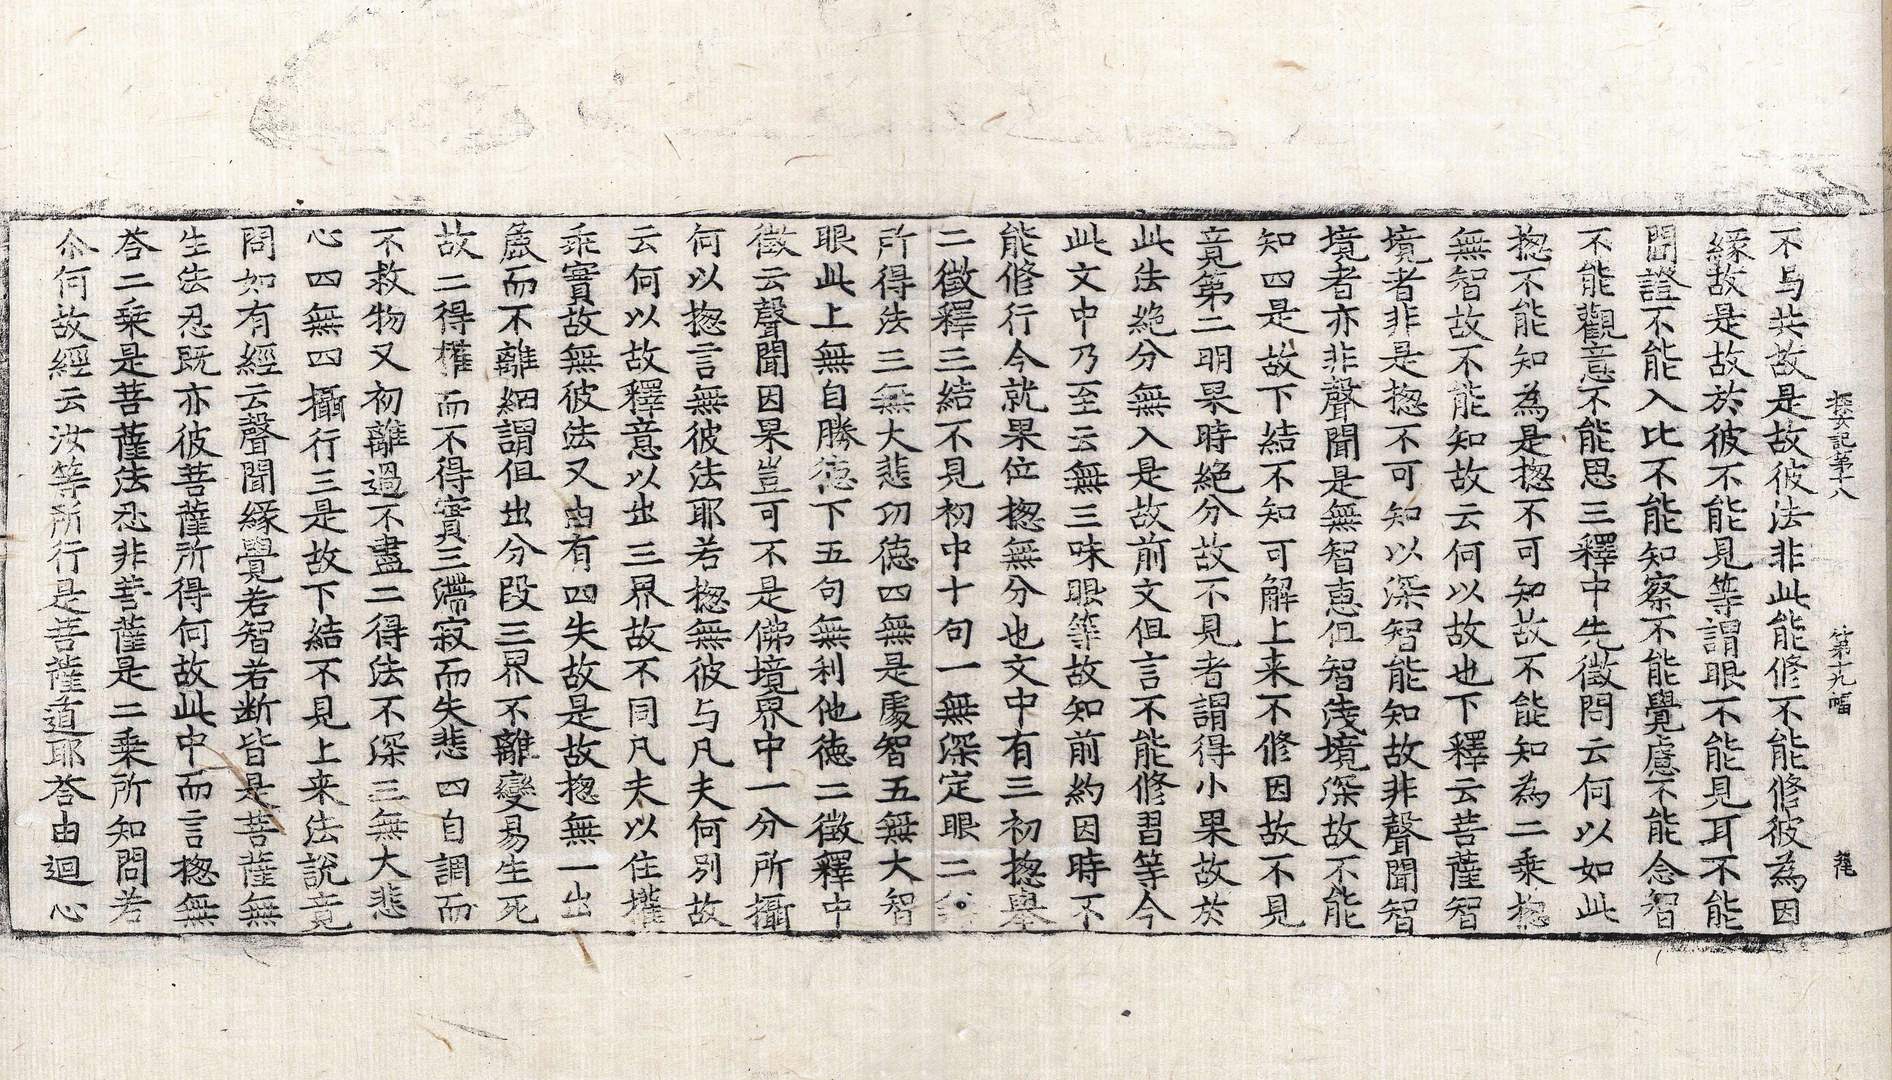 探玄記第十八　第十九幅
不与共故是故彼法非此能修不能修彼為因
縁故是故於彼不能見等謂眼不能見耳不能
聞證不能入比不能知察不能覺慮不能念智
不能觀意不能思三釋中先徵問云何以如此
揔不能知為是揔不可知故不能知為二乗揔
無智故不能知故云何以故也下釋云菩薩智
境者非是揔不可知以深智能知故非聲聞智
境者亦非聲聞是無智恵但智浅境深故不能
知四是故下結不知可解上来不修因故不見
竟第二明果時絶分故不見者謂得小果故於
此法絶分無入是故前文但言不能修習等今
此文中乃至云無三昧眼等故知前約因時不
能修行今就果位揔無分也文中有三初揔舉
二徵釋三結不見初中十句一無深定眼二
所得法三無大悲功徳四無是處智五無大智
眼此上無自勝徳下五句無利他徳二徵釋中
徵云聲聞因果豈可不是佛境界中一分所攝
何以揔言無彼法耶若揔無彼与凡夫何別故
云何以故釋意以出三界故不同凡夫以住權
乖實故無彼法又由有四失故是故揔無一出
麁而不離細謂但出分段三界不離變易生死
故二得權而不得實三滯寂而失悲四自調而
不救物又初離過不盡二得法不深三無大悲
心四無四攝行三是故下結不見上来法說竟
問如有經云聲聞緣覺若智若断皆是菩薩無
生法忍既亦彼菩薩所得何故此中而言揔無
荅二乗是菩薩法忍非菩薩是二乗所知問若
尒何故經云汝等所行是菩薩道耶荅由迴心